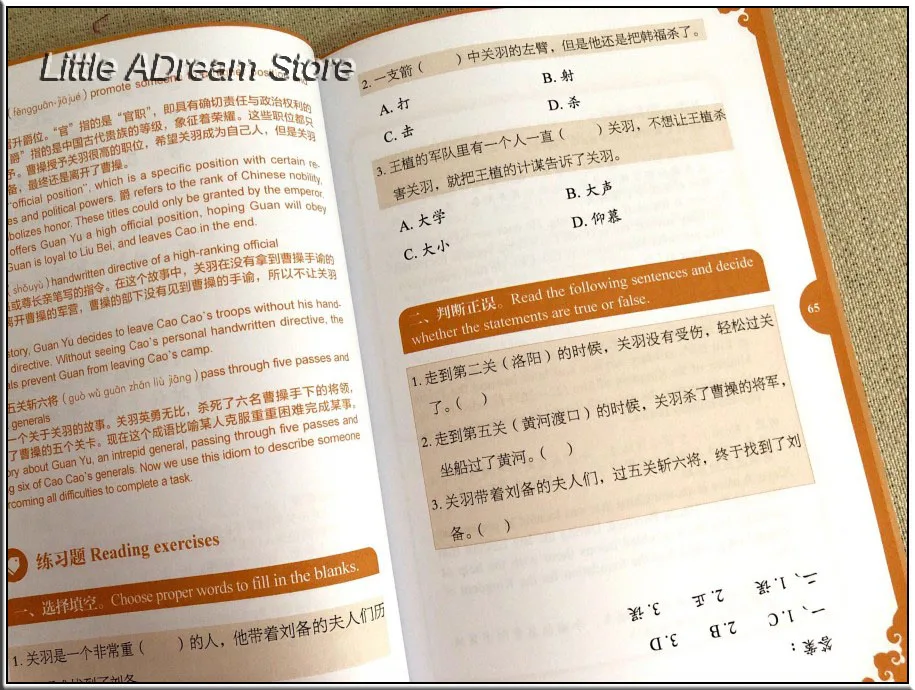 Little ADream Store
(fēngguān-jiājué) promote someone
升爵位。“官”指的是“官职”，即具有确切责任与政治权利的
爵”指的是中国古代贵族的等级，象征着荣耀。这些职位都只
予。曹操授予关羽很高的职位，希望关羽成为自己人，但是关羽
备，最终还是离开了曹操。
“official position”, which is a specific position with certain re-
es and political powers. 爵 refers to the rank of Chinese nobility,
bolizes honor. These titles could only be granted by the emperor.
offers Guan Yu a high official position, hoping Guan will obey
Guan is loyal to Liu Bei, and leaves Cao in the end.
(shǒuyù) handwritten directive of a high-ranking official
或尊长亲笔写的指令。在这个故事中，关羽在没有拿到曹操手谕的
离开曹操的军营，曹操的部下没有见到曹操的手谕，所以不让关羽
story, Guan Yu decides to leave Cao Cao's troops without his hand-
directive. Without seeing Cao's personal handwritten directive, the
ls prevent Guan from leaving Cao's camp.
五关斩六将 (guò wǔ guān zhǎn liù jiàng) pass through five passes and
generals
一个关于关羽的故事。关羽英勇无比，杀死了六名曹操手下的将领，
了曹操的五个关卡。现在这个成语比喻某人克服重重困难完成某事。
ory about Guan Yu, an intrepid general, passing through five passes and
g six of Cao Cao's generals. Now we use this idiom to describe someone
rcoming all difficulties to complete a task.
练习题 Reading exercises
一、选择填空。Choose proper words to fill in the blanks.
1. 关羽是一个非常重（ ）的人，他带着刘备的夫人们历
找到了刘备
2. 一支箭（ ）中关羽的左臂，但是他还是把韩福杀了。
A. 打 B. 射
C. 击 D. 杀
3. 王植的军队里有一个人一直（ ）关羽，不想让王植杀
害关羽，就把王植的计谋告诉了关羽。
A. 大学 B. 大声
C. 大小 D. 仰慕
二、判断正误。Read the following sentences and decide
whether the statements are true or false.
1. 走到第二关（洛阳）的时候，关羽没有受伤，轻松过关
了。（ ）
2. 走到第五关（黄河渡口）的时候，关羽杀了曹操的将军，
坐船过了黄河。（ ）
3. 关羽带着刘备的夫人们，过五关斩六将，终于找到了刘
备。（ ）
答案：
一、1. C 2. B 3. D
二、1. 误 2. 正 3. 误
65